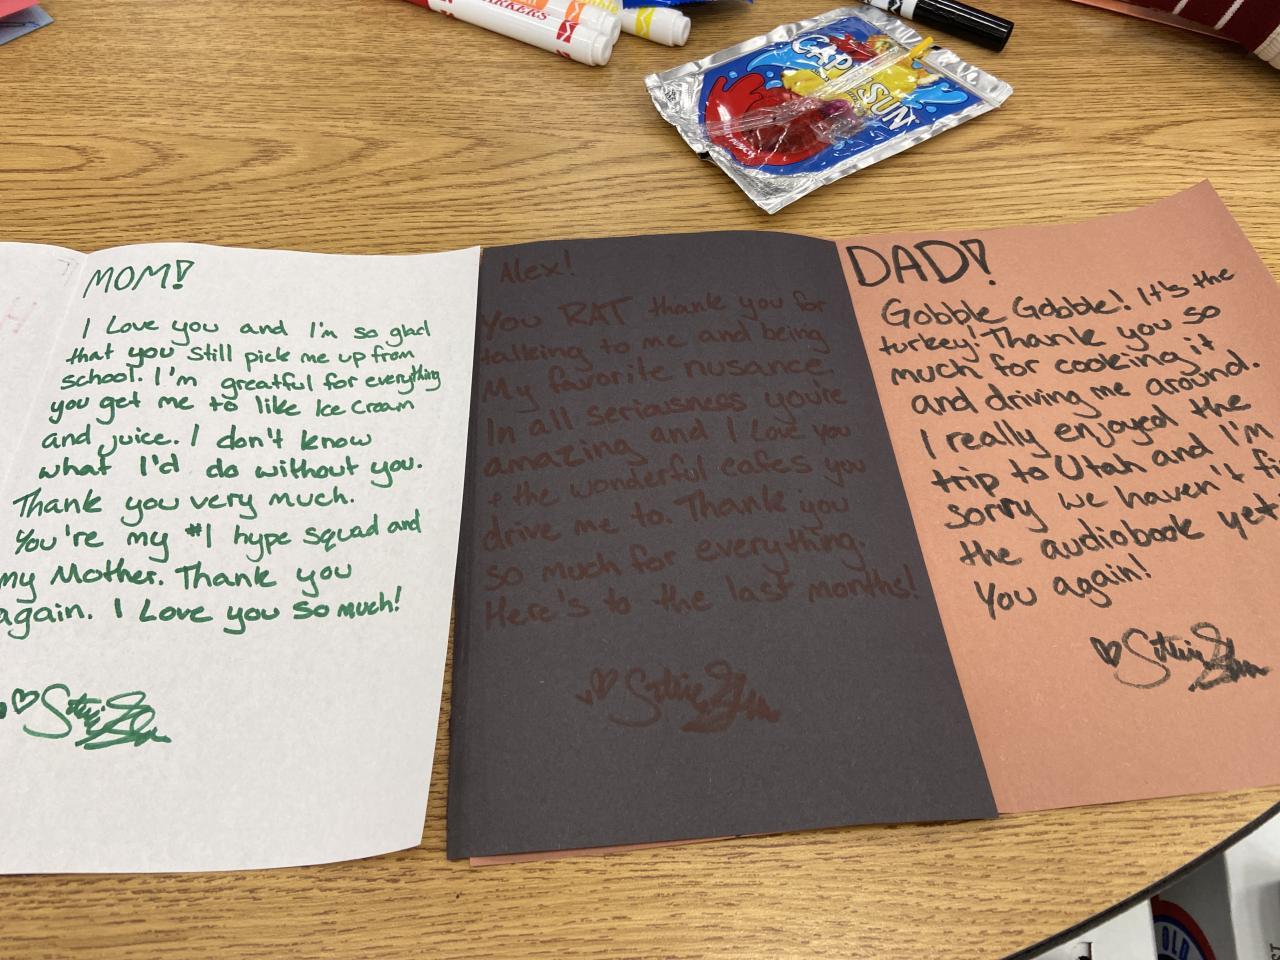 MARKERS
CAPRI SUN
PUNCH
MOM!
I Love you and I'm so glad
that you still pick me up from
school. I'm greatful for everything
you get me to like Ice Cream
and juice. I don't know
what I'd do without you.
Thank you very much.
You're my #1 hype squad and
my Mother. Thank you
again. I Love you so much!
Alex!
You RAT thank you for
talking to me and being
My favorite nusance.
In all seriousness you're
amazing and I Love you
+ the wonderful cafes you
drive me to. Thank you
so much for everything.
Here's to the last months!
DAD!
Gobble Gobble! It's the
turkey! Thank you so
much for cooking it
and driving me around.
I really enjoyed the
trip to Utah and I'm
sorry we haven't
the audiobook yet
You again!
OLD